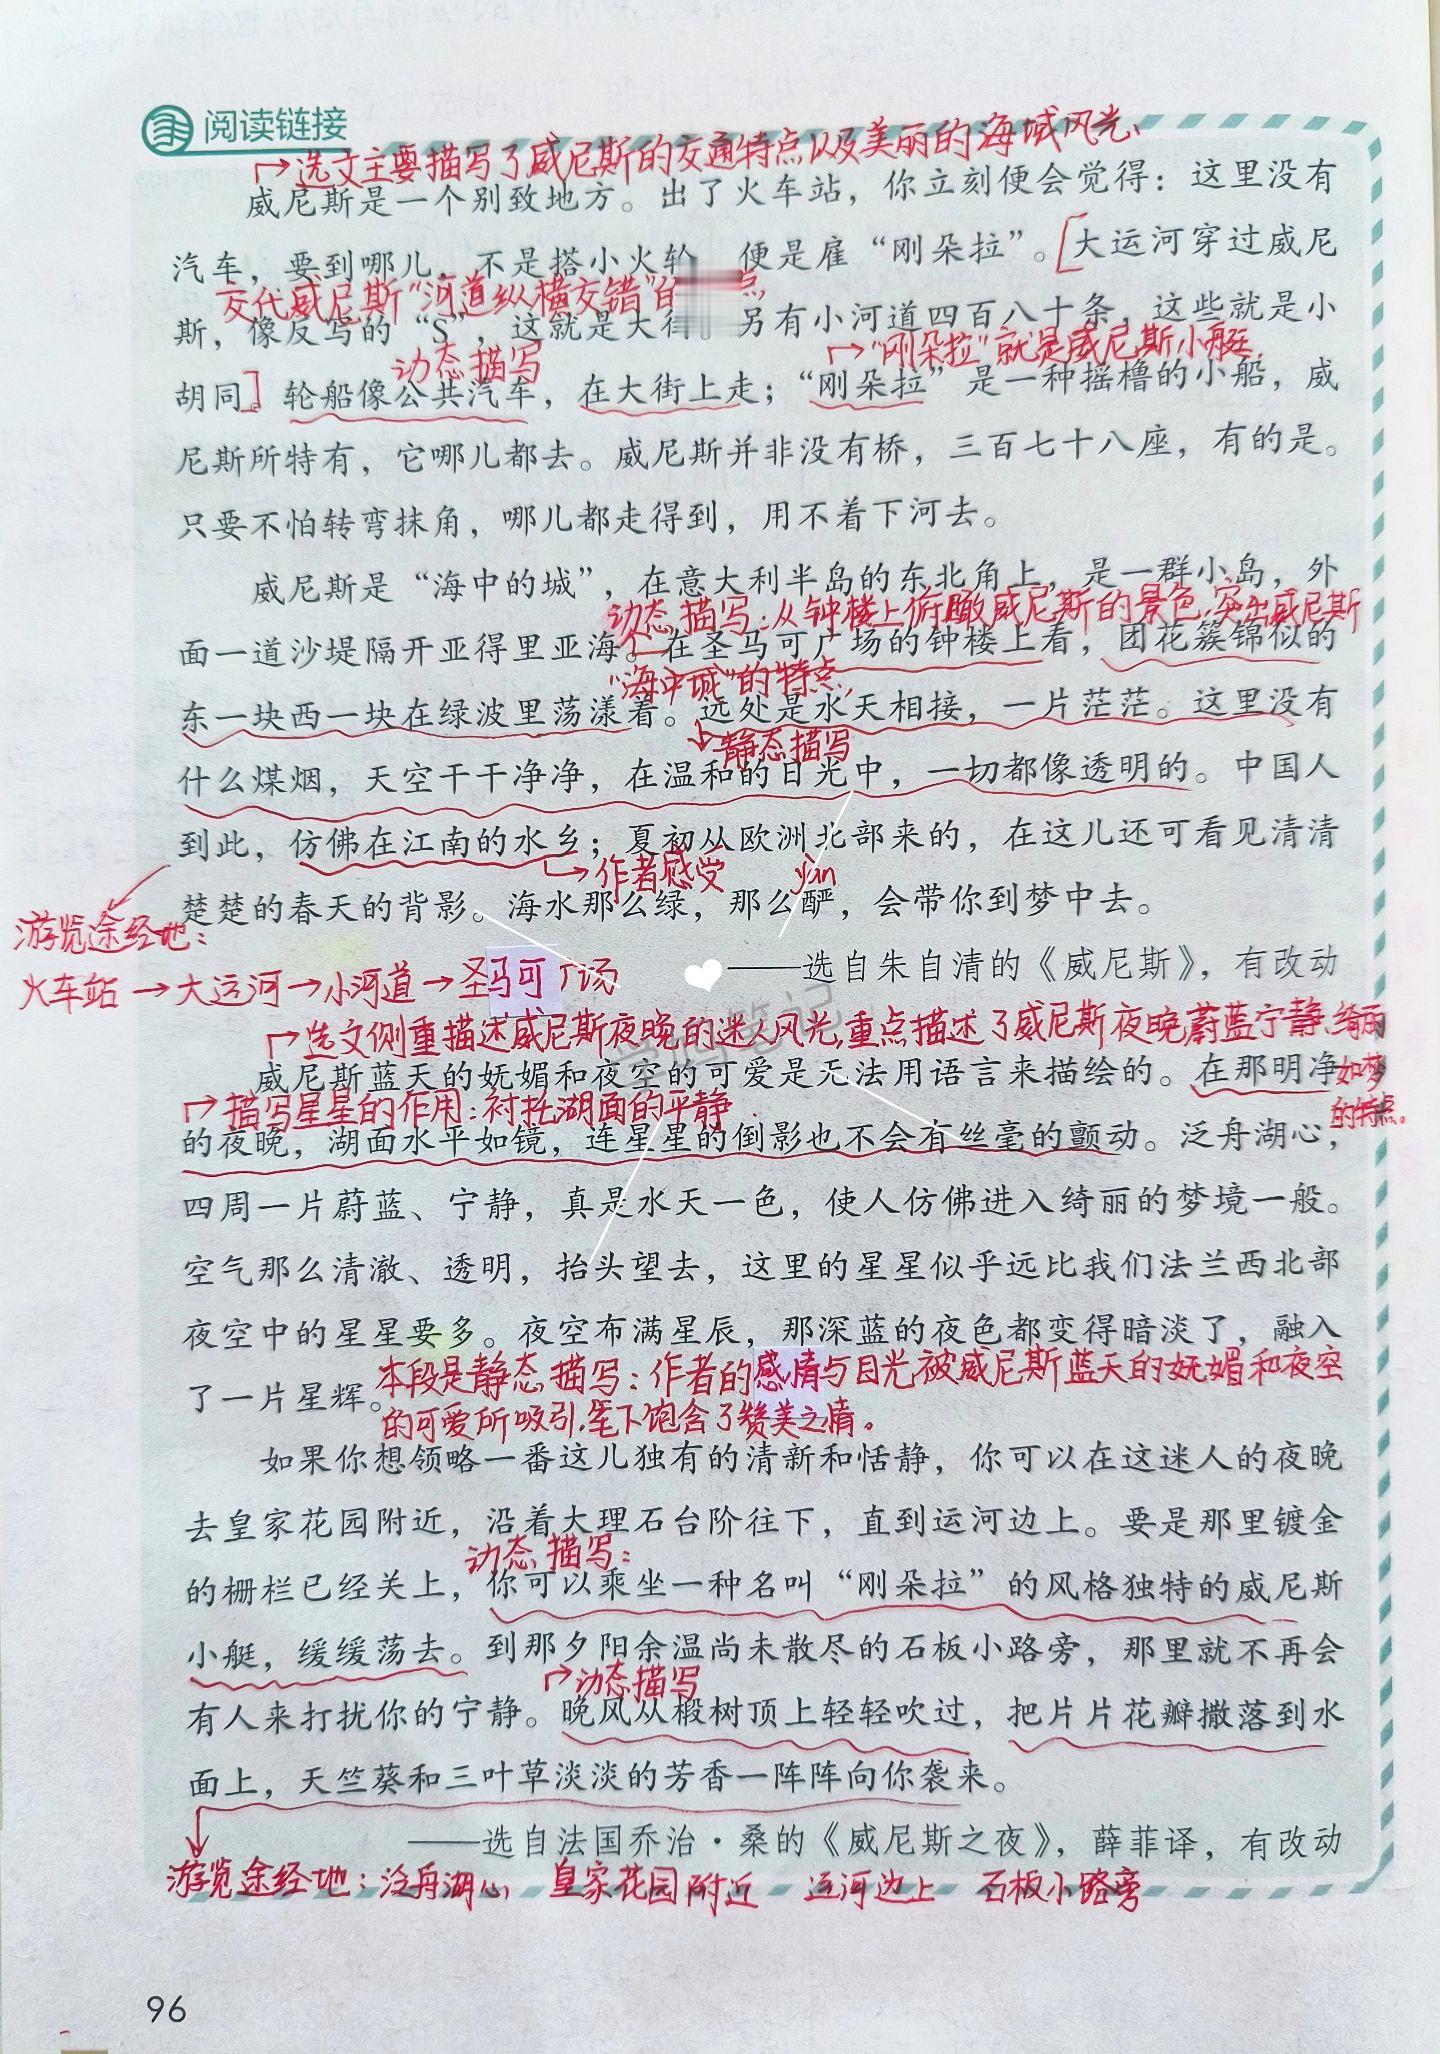 阅读链接
选文主要描写了威尼斯的交通特点以及美丽的海域风光、
威尼斯是一个别致地方。出了火车站，你立刻便会觉得：这里没有
汽车，要到哪儿，不是搭小火轮 便是雇“刚朵拉”。大运河穿过威尼
交代威尼斯“河道纵横交错”的 点
斯，像反写的“S”，这就是大街 另有小河道四百八十条，这些就是小
动态描写
“刚朵拉”就是威尼斯小艇
胡同。轮船像公共汽车，在大街上走；“刚朵拉”是一种摇橹的小船，威
尼斯所特有，它哪儿都去。威尼斯并非没有桥，三百七十八座，有的是。
只要不怕转弯抹角，哪儿都走得到，用不着下河去。
威尼斯是“海中的城”，在意大利半岛的东北角上，是一群小岛，外
动态描写：从钟楼上俯瞰威尼斯的景色，突出威尼斯
面一道沙堤隔开亚得里亚海。在圣马可广场的钟楼上看，团花簇锦似的
“海中城”的特点
东一块西一块在绿波里荡漾着。远处是水天相接，一片茫茫。这里没有
静态描写
什么煤烟，天空干干净净，在温和的日光中，一切都像透明的。中国人
到此，仿佛在江南的水乡；夏初从欧洲北部来的，在这儿还可看见清清
作者感受
yàn
楚楚的春天的背影。海水那么绿，那么酽，会带你到梦中去。
游览途经地：
——选自朱自清的《威尼斯》，有改动
火车站→大运河→小河道→圣马可广场
笔记
选文侧重描述威尼斯夜晚的迷人风光，重点描述了威尼斯夜晚蔚蓝宁静、绮丽
如梦
的特点。
威尼斯蓝天的妩媚和夜空的可爱是无法用语言来描绘的。在那明净
描写星星的作用：衬托湖面的平静
的夜晚，湖面水平如镜，连星星的倒影也不会有丝毫的颤动。泛舟湖心，
四周一片蔚蓝、宁静，真是水天一色，使人仿佛进入绮丽的梦境一般。
空气那么清澈、透明，抬头望去，这里的星星似乎远比我们法兰西北部
夜空中的星星要多。夜空布满星辰，那深蓝的夜色都变得暗淡了，融入
本段是静态描写：作者的感情与目光被威尼斯蓝天的妩媚和夜空
了一片星辉。
的可爱所吸引，笔下饱含了赞美之情。
如果你想领略一番这儿独有的清新和恬静，你可以在这迷人的夜晚
去皇家花园附近，沿着大理石台阶往下，直到运河边上。要是那里镀金
动态描写：
的栅栏已经关上，你可以乘坐一种名叫“刚朵拉”的风格独特的威尼斯
小艇，缓缓荡去。到那夕阳余温尚未散尽的石板小路旁，那里就不再会
动态描写
有人来打扰你的宁静。晚风从椴树顶上轻轻吹过，把片片花瓣撒落到水
面上，天竺葵和三叶草淡淡的芳香一阵阵向你袭来。
——选自法国乔治·桑的《威尼斯之夜》，薛菲译，有改动
游览途经地：泛舟湖心 皇家花园附近 运河边上 石板小路旁
96